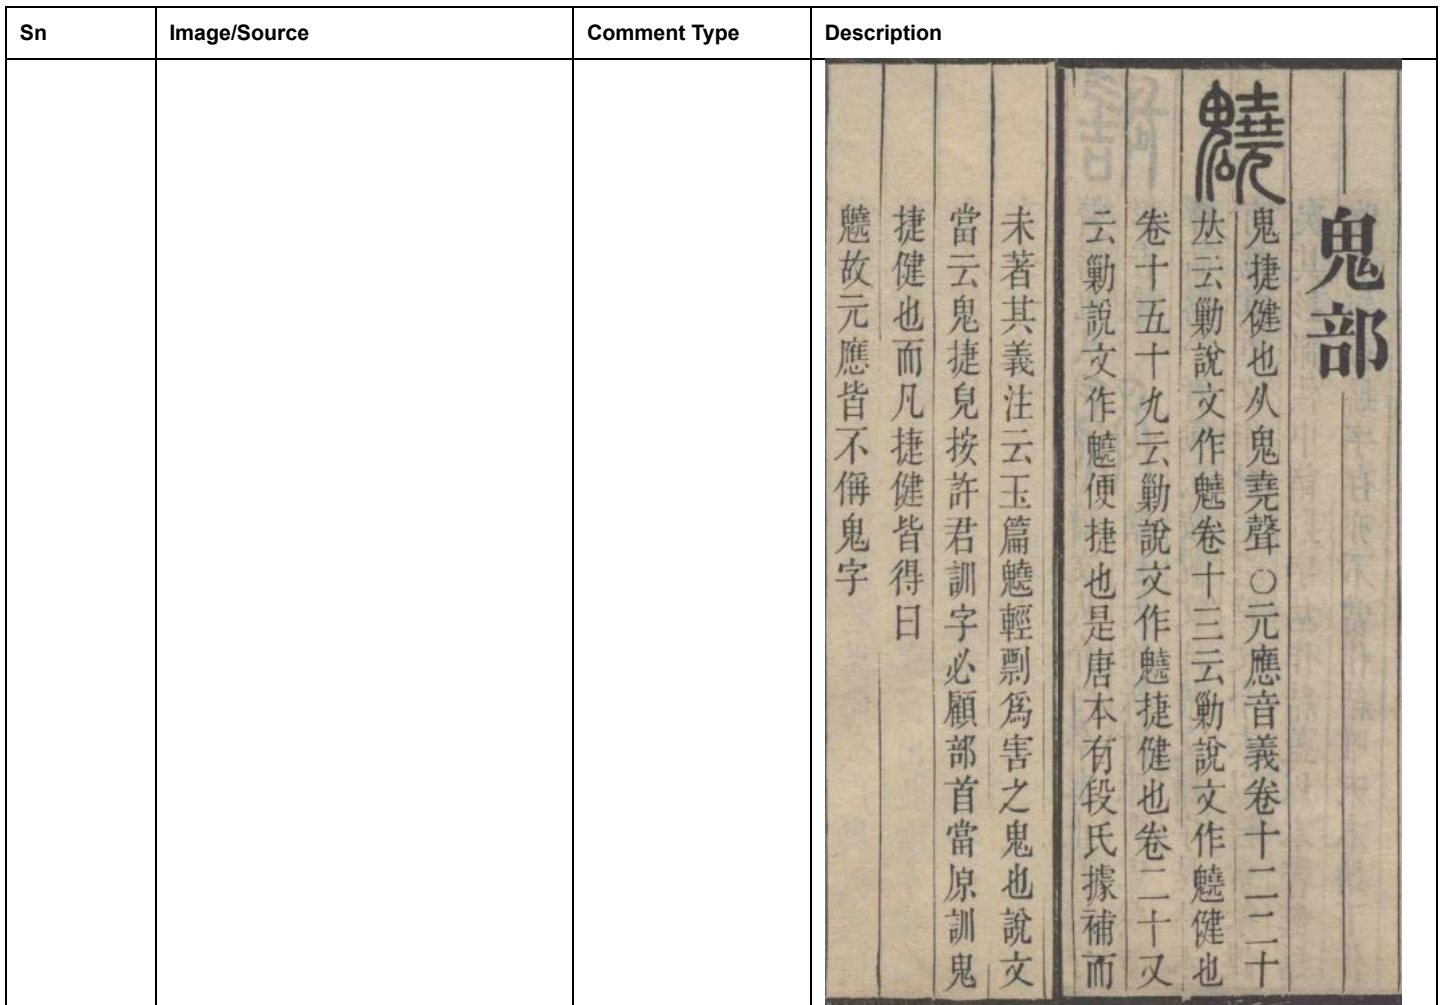 Sn Image/Source Comment Type Description
鬼部
⿺鬼堯
鬼捷健也从鬼堯聲○元應音義卷十二二十
云勦說文作⿺鬼堯卷十三云勦說文作⿺鬼堯健也
卷十五十九云勦說文作⿺鬼堯捷健也卷二十又
云勦說文作⿺鬼堯便捷也是唐本有段氏據補而
未著其義注云玉篇⿺鬼堯輕剽爲害之鬼也說文
當云鬼捷皃按許君訓字必顧部首當原訓鬼
捷健也而凡捷健皆得曰
⿺鬼堯故元應皆不偁鬼字